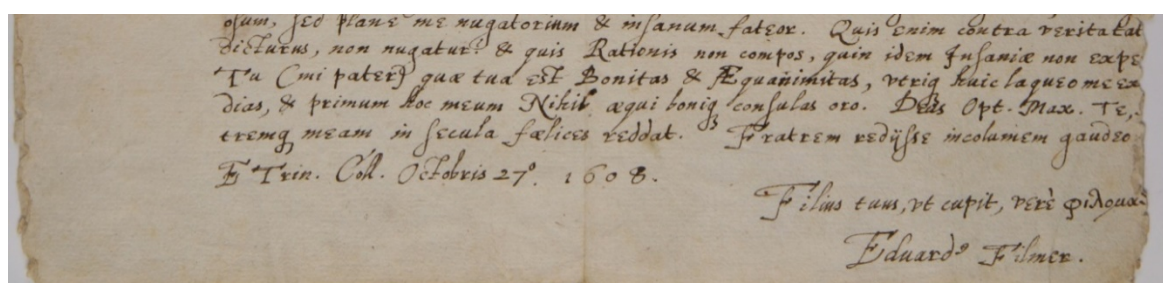 osum, sed plane me nugatorium & insanum fateor. Quis enim contra veritatat
dicturus, non nugatur? & quis Rationis non compos, quin idem Insaniæ non expe
Tu (mi pater) quæ tua est Bonitas & Æquanimitas, vtriq huic laqueo me ex
dias, & primum hoc meum Nihil æqui boniq consulas oro. Deus Opt. Max. Te,
tremq meam in secula fælices reddat. Fratrem redijsse incolamem gaudeo
E Trin. Coll. Octobris 27º. 1608.
Filius tuus, vt cupit, verè φιλομα
Eduardꝰ Filmer.